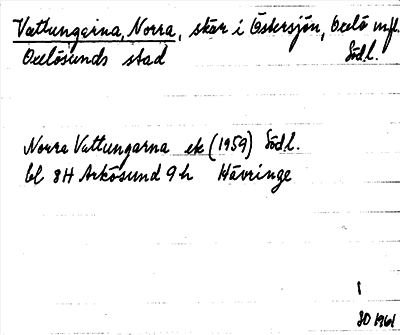 Vattungarna, Norra, skär i Östersjön, Oxelö mfl.
Oxelösunds stad Södl.
Norra Vattungarna ek (1959) Södl.
bl 8H Arkösund 9h Hävringe
1
SO 1961